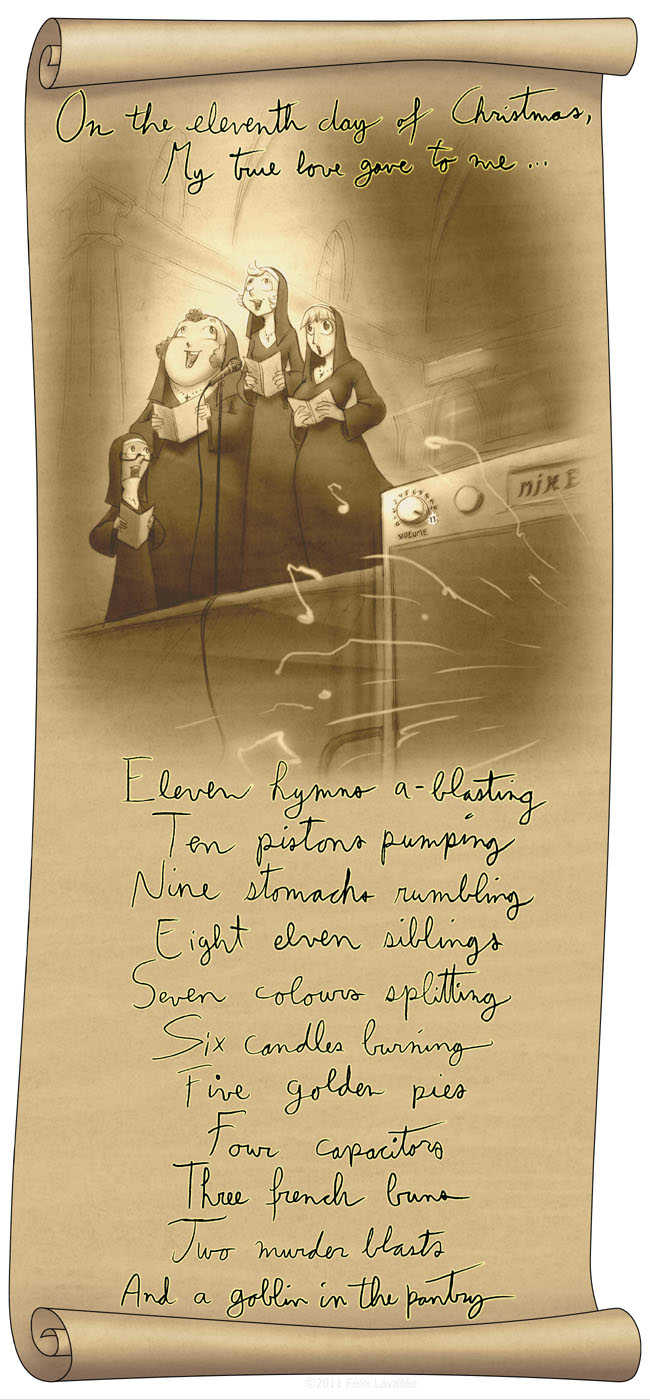 On the eleventh day of Christmas,
My true love gave to me ...
niKE
VOLUME
Eleven hymns a-blasting
Ten pistons pumping
Nine stomachs rumbling
Eight elven siblings
Seven colours splitting
Six candles burning
Five golden pies
Four capacitors
Three french buns
Two murder blasts
And a goblin in the pantry
©2011 Félix Lavallée